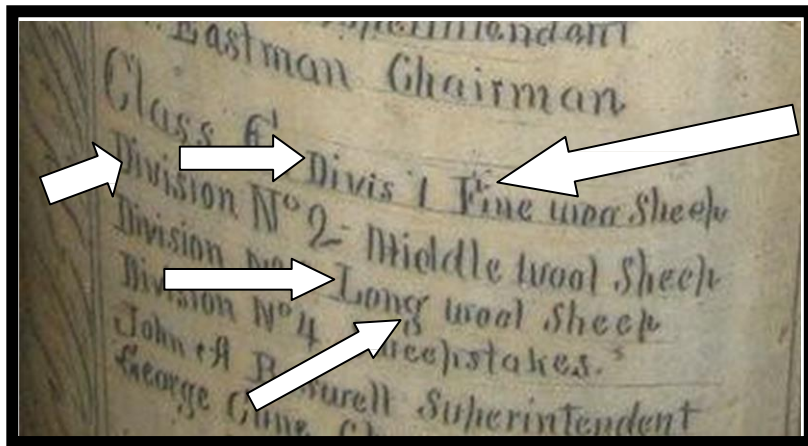 Superintendant
Eastman Chairman
Class C
Divis 1 Fine woo Sheep
Division Nº 2 - Middle wool Sheep
Division Long wool Sheep
Division Nº 4 Sweepstakes.
John A Superintendent
George